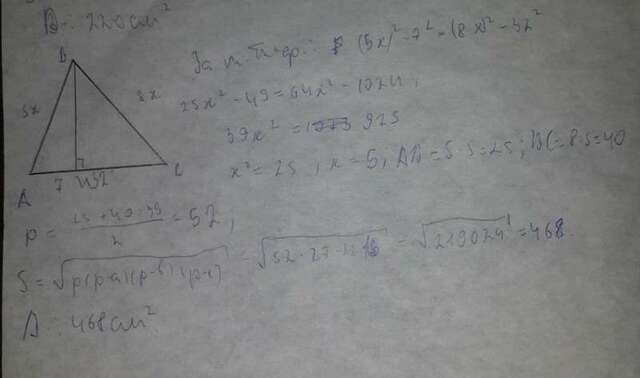 B: 220 см²
B
За т. Піфр.: (5x)² - 7² = (8x)² - 32²
5x
8x
25x² - 49 = 64x² - 1024;
39x² = 925
x² = 25, x = 5; AB = 5·5 = 25; BC = 8·5 = 40
A
7
32
C
p = (25 + 40 + 39)/2 = 52;
S = √p(p-a)(p-b)(p-c) = √52·27·12·13 = √219024 = 468.
468 см²